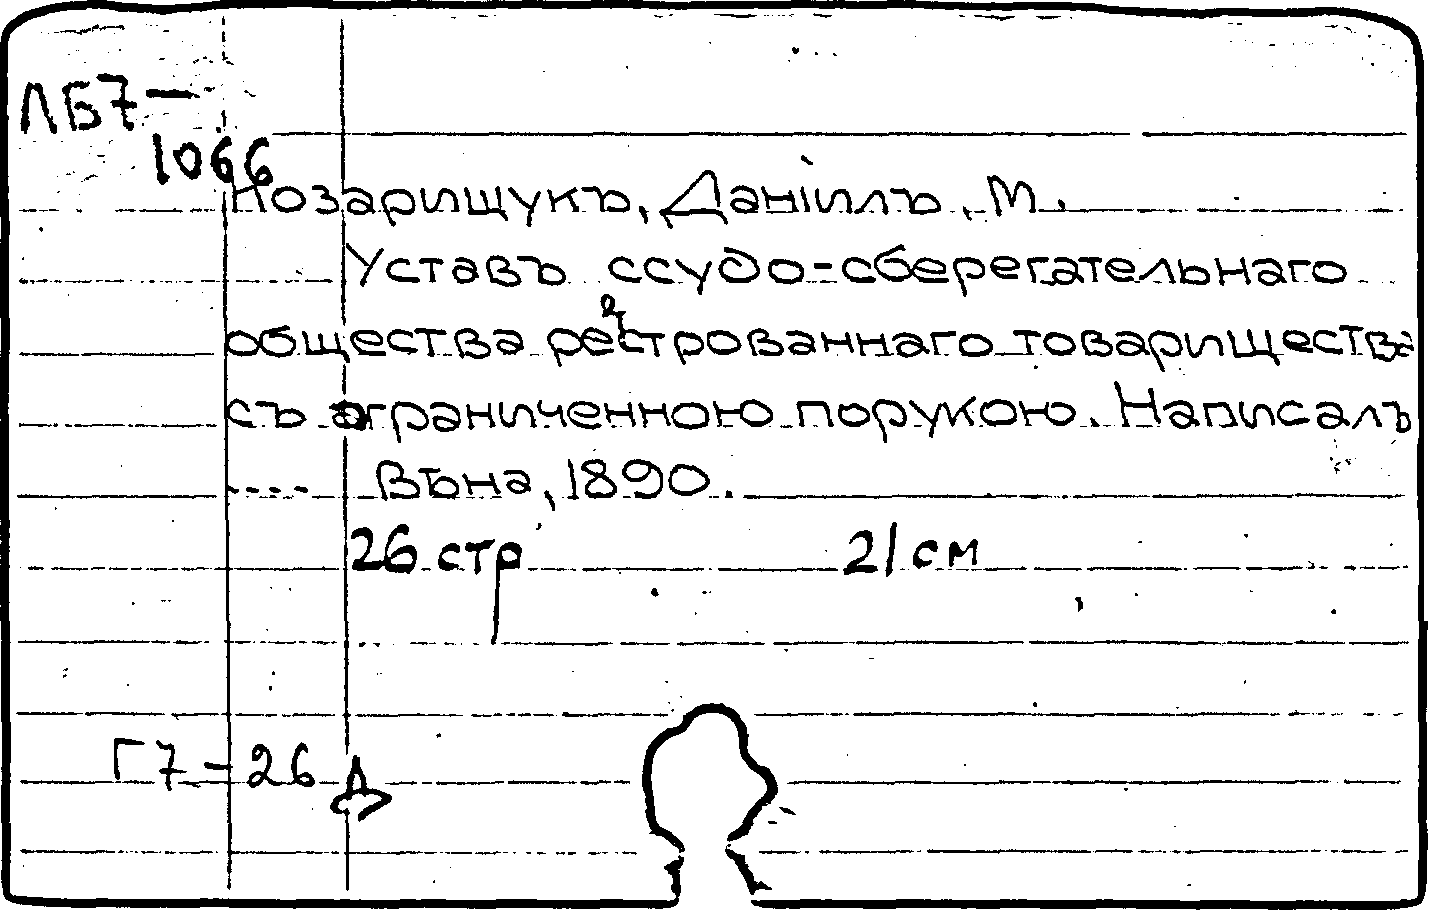 ЛБ7-
1066
Козарищукъ, Данiилъ, М.
Уставъ ссудо-сберегательнаго
общества регстрованнаго товарищества
съ ограниченною порукою. Написалъ
.... Вѣна, 1890.
26 стр 21 см
Г7-26 Д